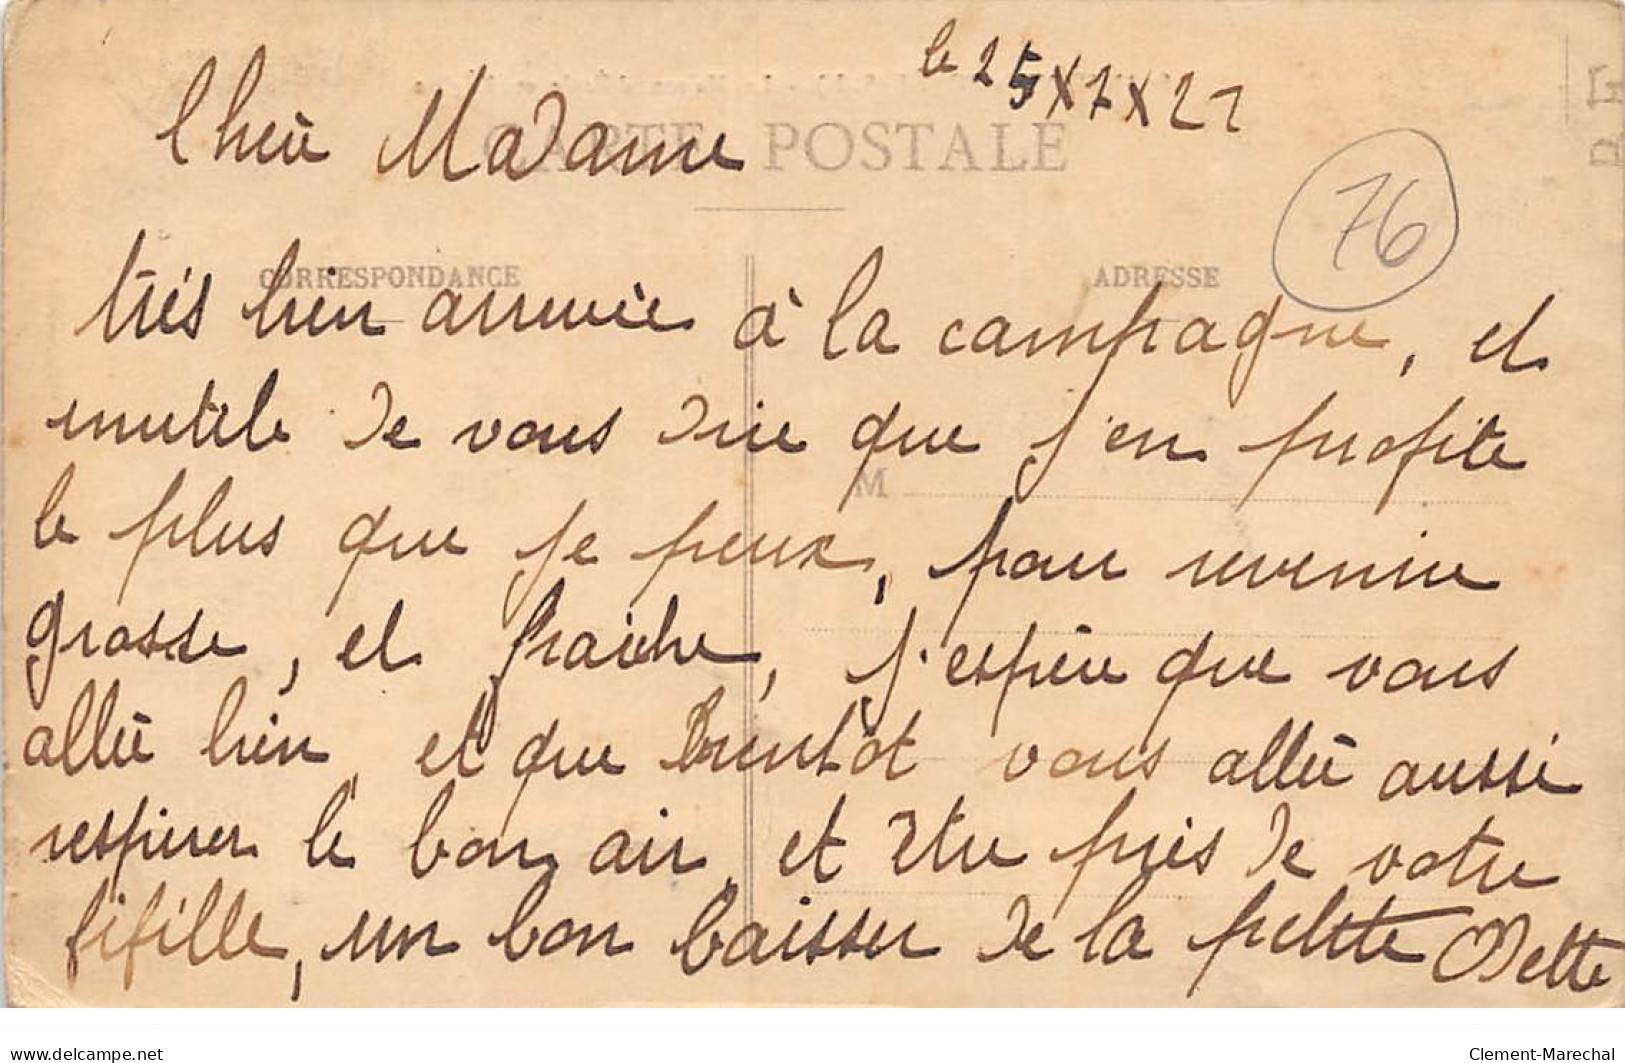 le 25x7x21
Chère Madame
CARTE POSTALE
76
CORRESPONDANCE
ADRESSE
très bien arrivée à la campagne, et
inutile de vous dire que j'en profite
M
le plus que je peux, pour revenir
grosse, et fraiche, j'espère que vous
allée bien, et que bientôt vous allée aussi
respirer le bon air, et être près de votre
fifille, un bon baisser de la petite Odette
delcampe.net
Clement-Marechal